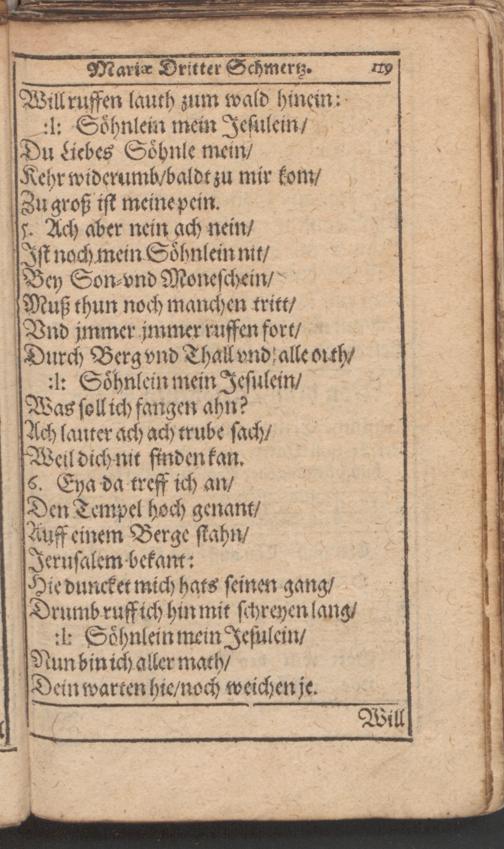 Mariæ Dritter Schmertz. 119
Will ruffen lauth zum wald hinein:
:l: Söhnlein mein Jesulein/
Du Liebes Söhnle mein/
Kehr widerumb/baldt zu mir kom/
Zu groß ist meine pein.
5. Ach aber nein ach nein/
Ist noch mein Söhnlein nit/
Bey Son-vnd Moneschein/
Muß thun noch manchen tritt/
Vnd jmmer jmmer ruffen fort/
Durch Berg vnd Thall vnd alle orth/
:l: Söhnlein mein Jesulein/
Was soll ich fangen ahn?
Ach lauter ach ach trube sach/
Weil dich nit finden kan.
6. Eya da treff ich an/
Den Tempel hoch genant/
Auff einem Berge stahn/
Jerusalem bekant:
Hie duncket mich hats seinen gang/
Drumb ruff ich hin mit schreyen lang/
:l: Söhnlein mein Jesulein/
Nun bin ich aller math/
Dein warten hie/noch weichen je.
Will